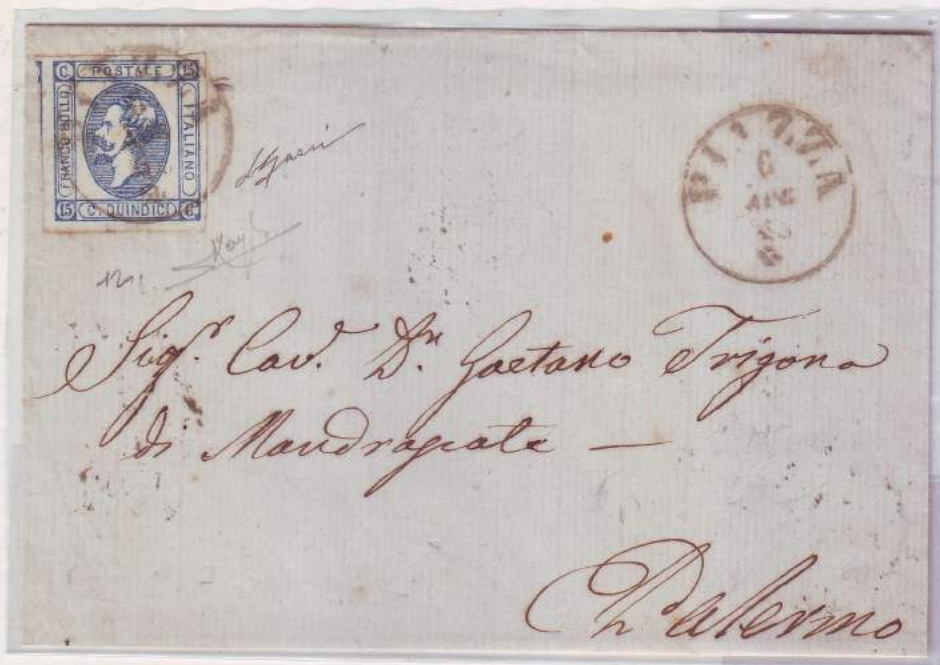 C. POSTALE 15
FRANCO BOLLO
ITALIANO
15 C. QUINDICI C.
PIAZZA
6
APR
63
Sig.r Cav. Dn Gaetano Trigona
di Mandrascate —
Palermo